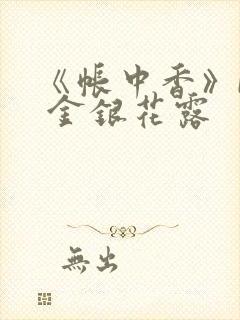 《帳中香》
金銀花露
無出